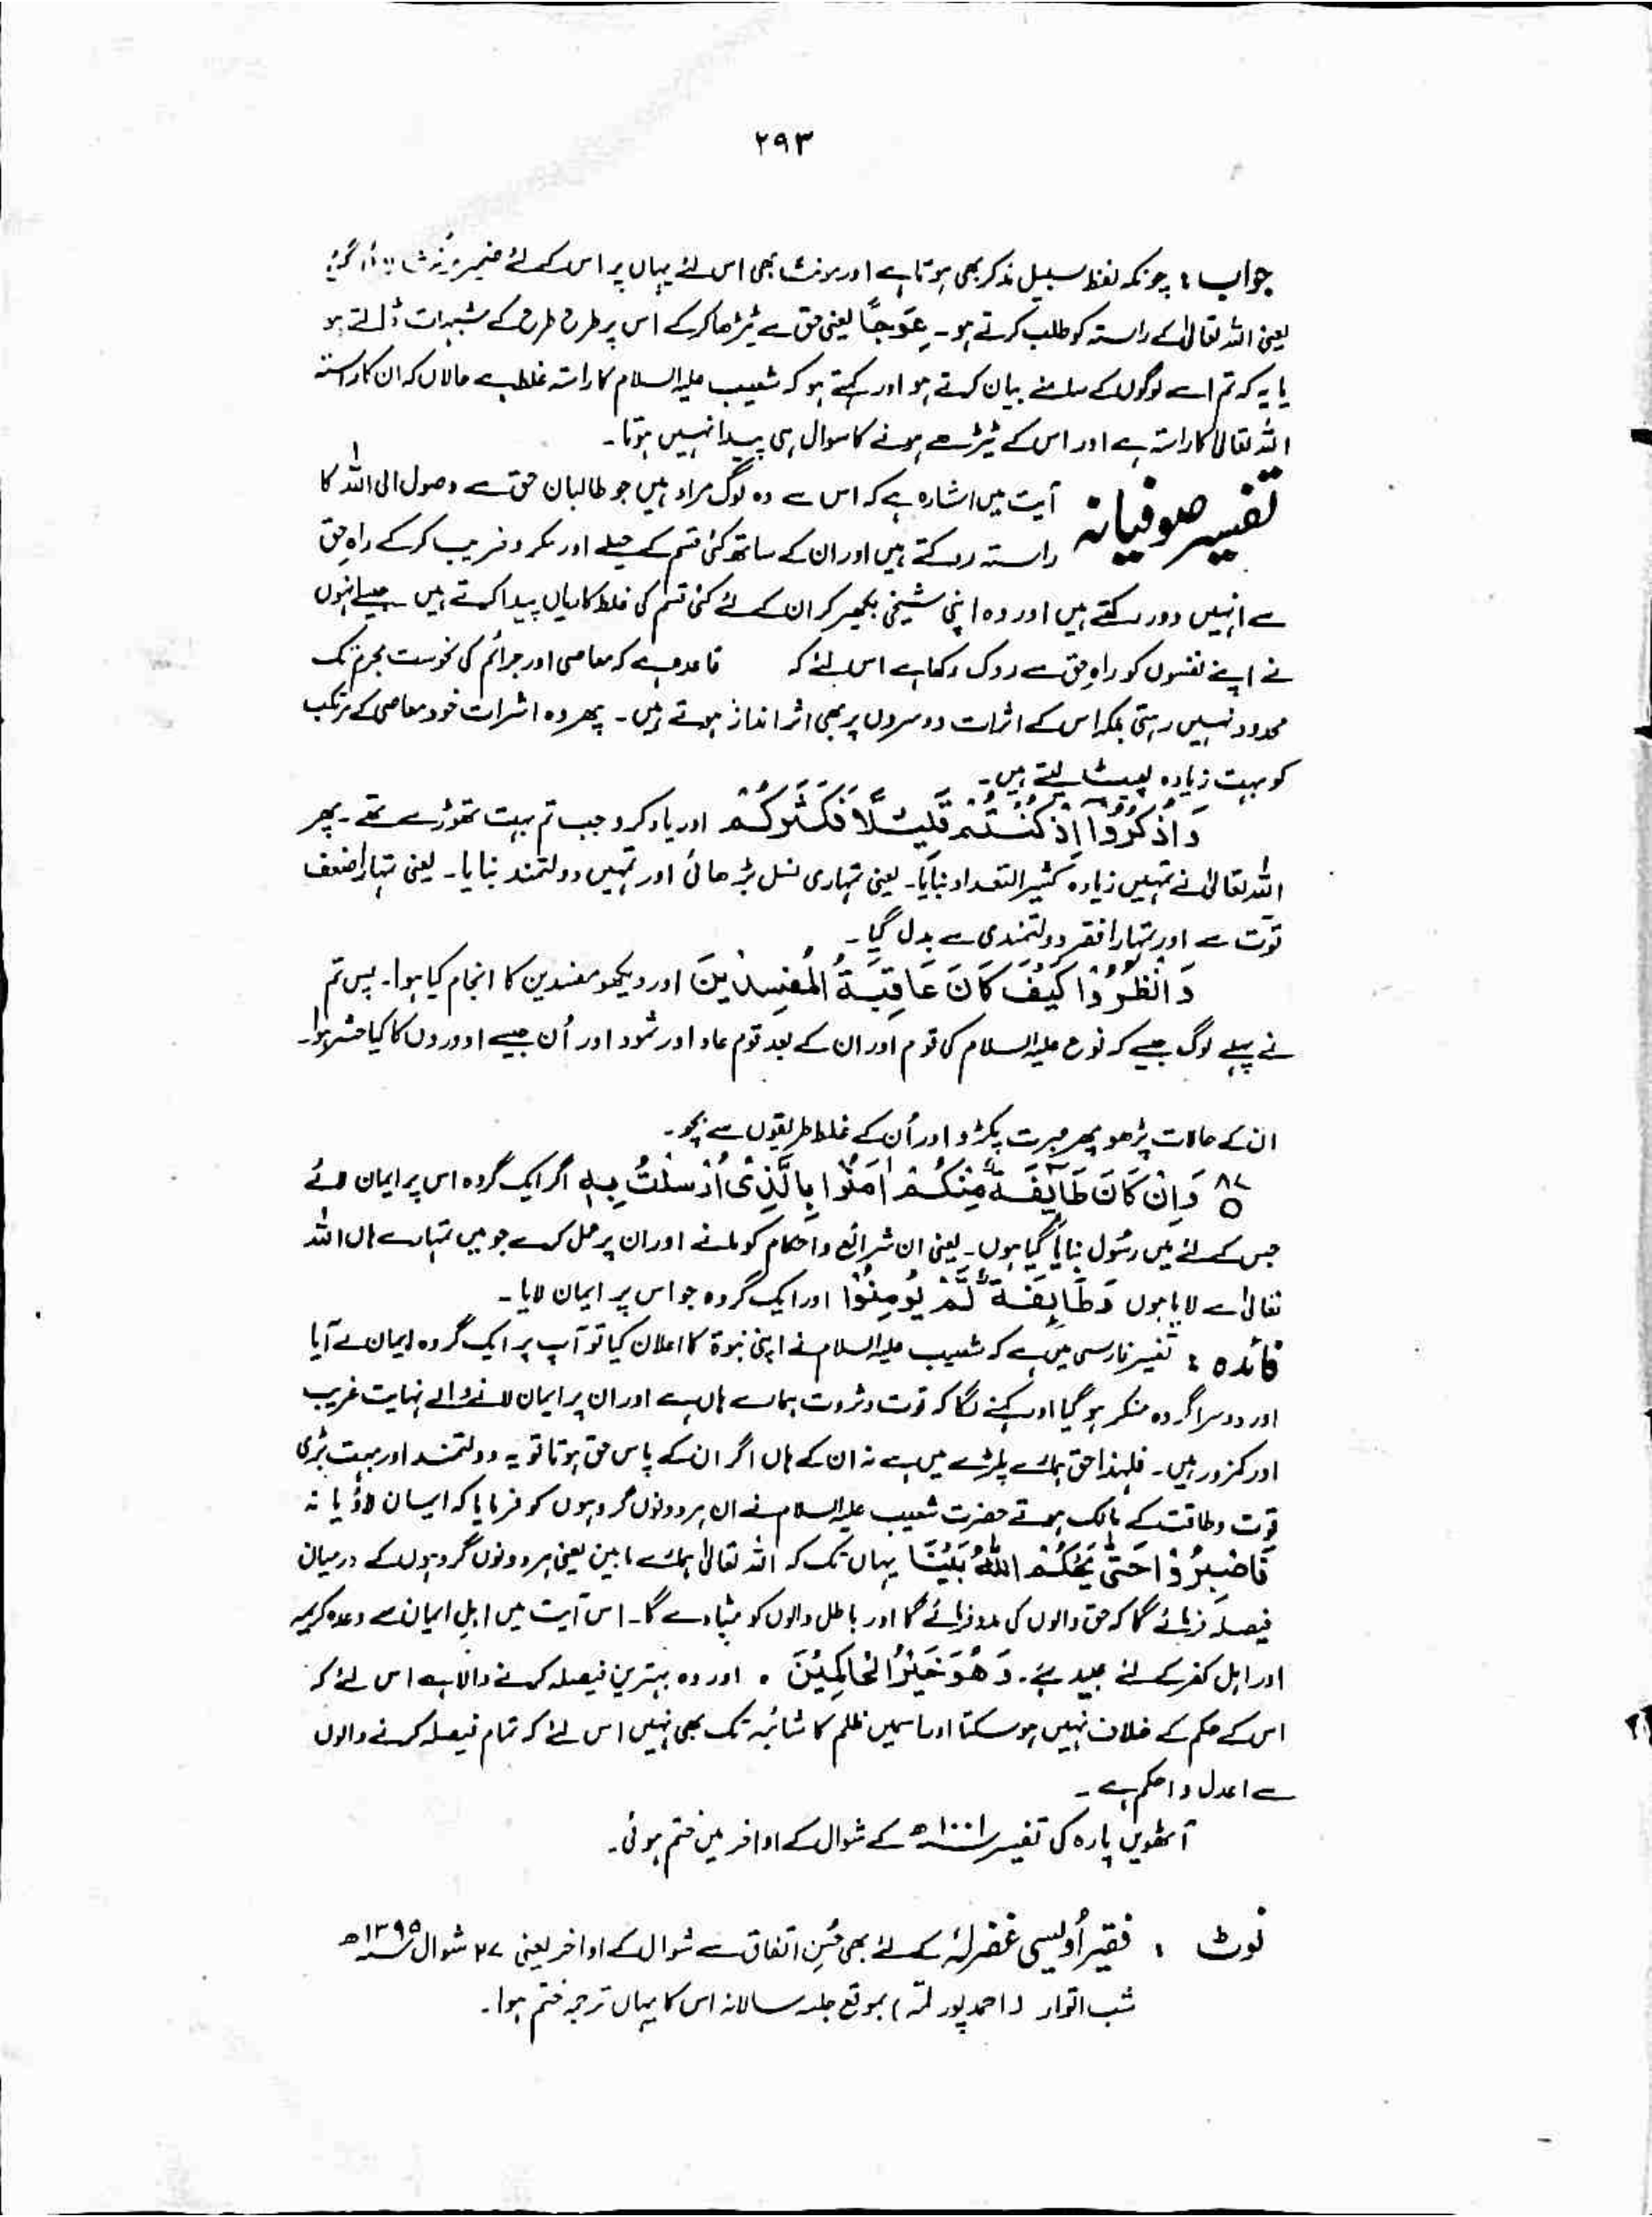 ۲۹۳
جواب : چونکہ لفظ سبیل مذکر بھی ہوتا ہے اور مونث بھی اس لئے یہاں پر اس کے لئے ضمیر مؤنث
یعنی اللہ تعالیٰ کے راستہ کو طلب کرتے ہو ۔ عِوَجًا یعنی حق سے ٹیڑھا کرکے اس پر طرح طرح کے شبہات ڈالتے ہو
یا یہ کہ تم اسے لوگوں کے سامنے بیان کرتے ہو اور کہتے ہو کہ شعیب علیہ السلام کا راستہ غلط ہے حالاں کہ ان کا راستہ
اللہ تعالیٰ کا راستہ ہے اور اس کے ٹیڑھے ہونے کا سوال ہی پیدا نہیں ہوتا ۔
تفسیر صوفیانہ آیت میں اشارہ ہے کہ اس سے وہ لوگ مراد ہیں جو طالبان حق سے وصول الی اللہ کا
راستہ روکتے ہیں اور ان کے ساتھ کئی قسم کے حیلے اور مکر و فریب کرکے راہِ حق
سے انہیں دور رکھتے ہیں اور وہ اپنی شیخی بکھیر کر ان کے لئے کئی قسم کی غلط کاریاں پیدا کرتے ہیں جیسے انہوں
نے اپنے نفسوں کو راہِ حق سے روک رکھا ہے اس لئے کہ قاعدہ ہے کہ معاصی اور جرائم کی نحوست مجرم تک
محدود نہیں رہتی بلکہ اس کے اثرات دوسروں پر بھی اثر انداز ہوتے ہیں ۔ پھر وہ اثرات خود معاصی کے مرتکب
کو بہت زیادہ لپیٹ لیتے ہیں ۔
وَاذْكُرُوْٓا اِذْ كُنْتُمْ قَلِيْلًا فَكَثَّرَكُمْ اور یاد کرو جب تم بہت تھوڑے تھے ۔ پھر
اللہ تعالیٰ نے تمہیں زیادہ کثیر التعداد بنایا ۔ یعنی تمہاری نسل بڑھائی اور تمہیں دولتمند بنایا ۔ یعنی تمہارا ضعف
قوت سے اور تمہارا فقر دولتمندی سے بدل گیا ۔
وَانْظُرُوْا كَيْفَ كَانَ عَاقِبَةُ الْمُفْسِدِيْنَ اور دیکھو مفسدین کا انجام کیا ہوا ۔ پس تم
نے پہلے لوگ جیسے کہ نوح علیہ السلام کی قوم اور ان کے بعد قوم عاد اور ثمود اور اُن جیسے اوروں کا کیا حشر ہوا ۔
ان کے حالات پڑھو پھر عبرت پکڑو اور اُن کے غلط طریقوں سے بچو ۔
۸۷ وَاِنْ كَانَ طَآئِفَةٌ مِّنْكُمْ اٰمَنُوْا بِالَّذِيْٓ اُرْسِلْتُ بِهٖ اگر ایک گروہ اس پر ایمان لائے
جس کے لئے میں رسُول بنایا گیا ہوں ۔ یعنی ان شرائع و احکام کو مانے اور ان پر عمل کرے جو میں تمہارے ہاں اللہ
تعالیٰ سے لایا ہوں وَطَآئِفَةٌ لَّمْ يُؤْمِنُوْا اور ایک گروہ جو اس پر ایمان لایا ۔
فائدہ : تفسیر فارسی میں ہے کہ شعیب علیہ السلام نے اپنی نبوۃ کا اعلان کیا تو آپ پر ایک گروہ ایمان لے آیا
اور دوسرا گروہ منکر ہو گیا اور کہنے لگا کہ قوت و ثروت ہمارے ہاں ہے اور ان پر ایمان لانے والے نہایت غریب
اور کمزور ہیں ۔ فلہذا حق ہمارے پلڑے میں ہے نہ ان کے ہاں اگر ان کے پاس حق ہوتا تو یہ دولتمند اور بہت بڑی
قوت و طاقت کے مالک ہوتے حضرت شعیب علیہ السلام نے ان ہر دونوں گروہوں کو فرمایا کہ ایمان لاؤ یا نہ
فَاصْبِرُوْا حَتّٰى يَحْكُمَ اللّٰهُ بَيْنَنَا یہاں تک کہ اللہ تعالیٰ ہمارے مابین یعنی ہر دونوں گروہوں کے درمیان
فیصلہ فرمائے گا کہ حق والوں کی مدد فرمائے گا اور باطل والوں کو مٹا دے گا ۔ اس آیت میں اہلِ ایمان سے وعدہ کریمہ
اور اہل کفر کے لئے وعید ہے ۔ وَهُوَ خَيْرُ الْحَاكِمِيْنَ ۰ اور وہ بہترین فیصلہ کرنے والا ہے اس لئے کہ
اس کے حکم کے خلاف نہیں ہو سکتا اور اسمیں ظلم کا شائبہ تک بھی نہیں اس لئے کہ تمام فیصلہ کرنے والوں
سے اعدل و احکم ہے ۔
آٹھویں پارہ کی تفسیر ۱۰۰۱ھ کے شوال کے اواخر میں ختم ہوئی ۔
نوٹ : فقیر اُویسی غفرلہٗ کے لئے بھی حُسنِ اتفاق سے شوال کے اواخر یعنی ۲۷ شوال ۱۳۹۵ھ
شب اتوار (احمد پور لمہ) بموقع جلسہ سالانہ اس کا یہاں ترجمہ ختم ہوا ۔